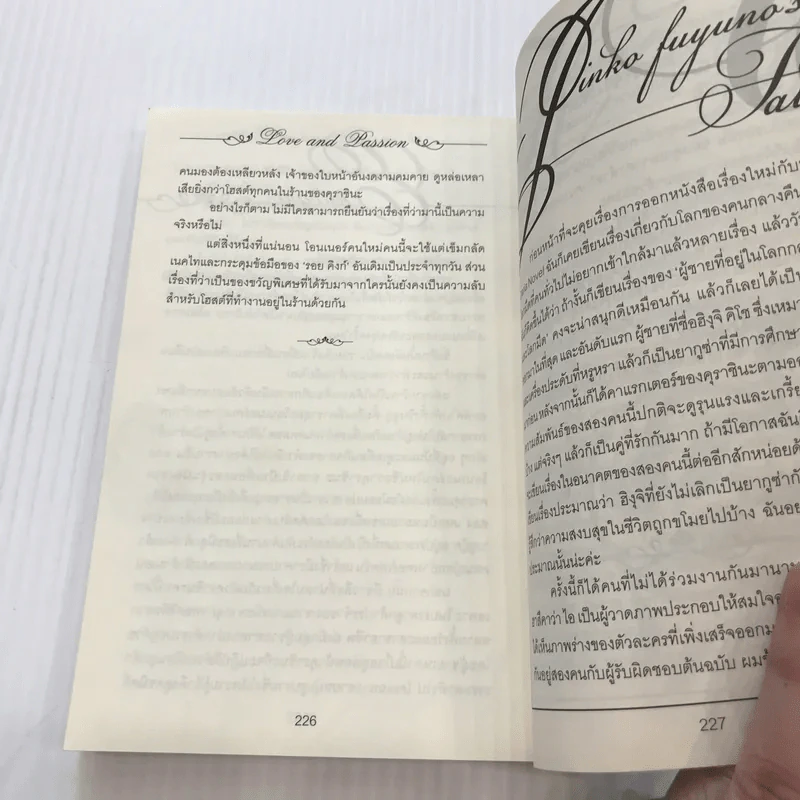 Love and Passion
คนมองต้องเหลียวหลัง เจ้าของใบหน้าอันงดงามคมคาย ดูหล่อเหลา
เสียยิ่งกว่าโฮสต์ทุกคนในร้านของคุราชินะ
อย่างไรก็ตาม ไม่มีใครสามารถยืนยันว่าเรื่องที่ว่ามานี้เป็นความ
จริงหรือไม่
แต่สิ่งหนึ่งที่แน่นอน โอนเนอร์คนใหม่คนนี้จะใช้แต่เข็มกลัด
เนคไทและกระดุมข้อมือของ 'รอย คิงก์' อันเดิมเป็นประจำทุกวัน ส่วน
เรื่องที่ว่าเป็นของขวัญพิเศษที่ได้รับมาจากใครนั้นยังคงเป็นความลับ
สำหรับโฮสต์ที่ทำงานอยู่ในร้านด้วยกัน
226
Jinko fuyuno's
ก่อนหน้าที่จะคุยเรื่องการออกหนังสือเรื่องใหม่กับ
Novel ฉันก็เคยเขียนเรื่องเกี่ยวกับโลกของคนกลางคืน
ที่คนทั่วไปไม่อยากเข้าใกล้มาแล้วหลายเรื่อง แล้ว
ขึ้นได้ว่า ถ้างั้นก็เขียนเรื่องของ 'ผู้ชายที่อยู่ในโลก
คงจะน่าสนุกดีเหมือนกัน แล้วก็เลยได้เป็น
ในที่สุด และอันดับแรก ผู้ชายที่ชื่อฮิงุจิ คิโซ ซึ่งเหมา
เครื่องประดับที่หรูหรา แล้วก็เป็นยากูซ่าที่มีการศึกษา
ก่อน หลังจากนั้นก็ได้คาแรกเตอร์ของคุราชินะตามออ
ความสัมพันธ์ของสองคนนี้ปกติจะดูรุนแรงและเกรี้ย
แต่จริงๆ แล้วก็เป็นคู่ที่รักกันมาก ถ้ามีโอกาสฉัน
จะเขียนเรื่องในอนาคตของสองคนนี้ต่ออีกสักหน่อยด้
เขียนเรื่องประมาณว่า ฮิงุจิที่ยังไม่เลิกเป็นยากูซ่า
รู้สึกว่าความสงบสุขในชีวิตถูกขโมยไปบ้าง ฉันอย
ประมาณนั้นน่ะค่ะ
ครั้งนี้ก็ได้คนที่ไม่ได้ร่วมงานกันมานาน
คาว่าไอ เป็นผู้วาดภาพประกอบให้สมใจ
ได้เห็นภาพร่างของตัวละครที่เพิ่งเสร็จออกม
กันอยู่สองคนกับผู้รับผิดชอบต้นฉบับ ผม
227